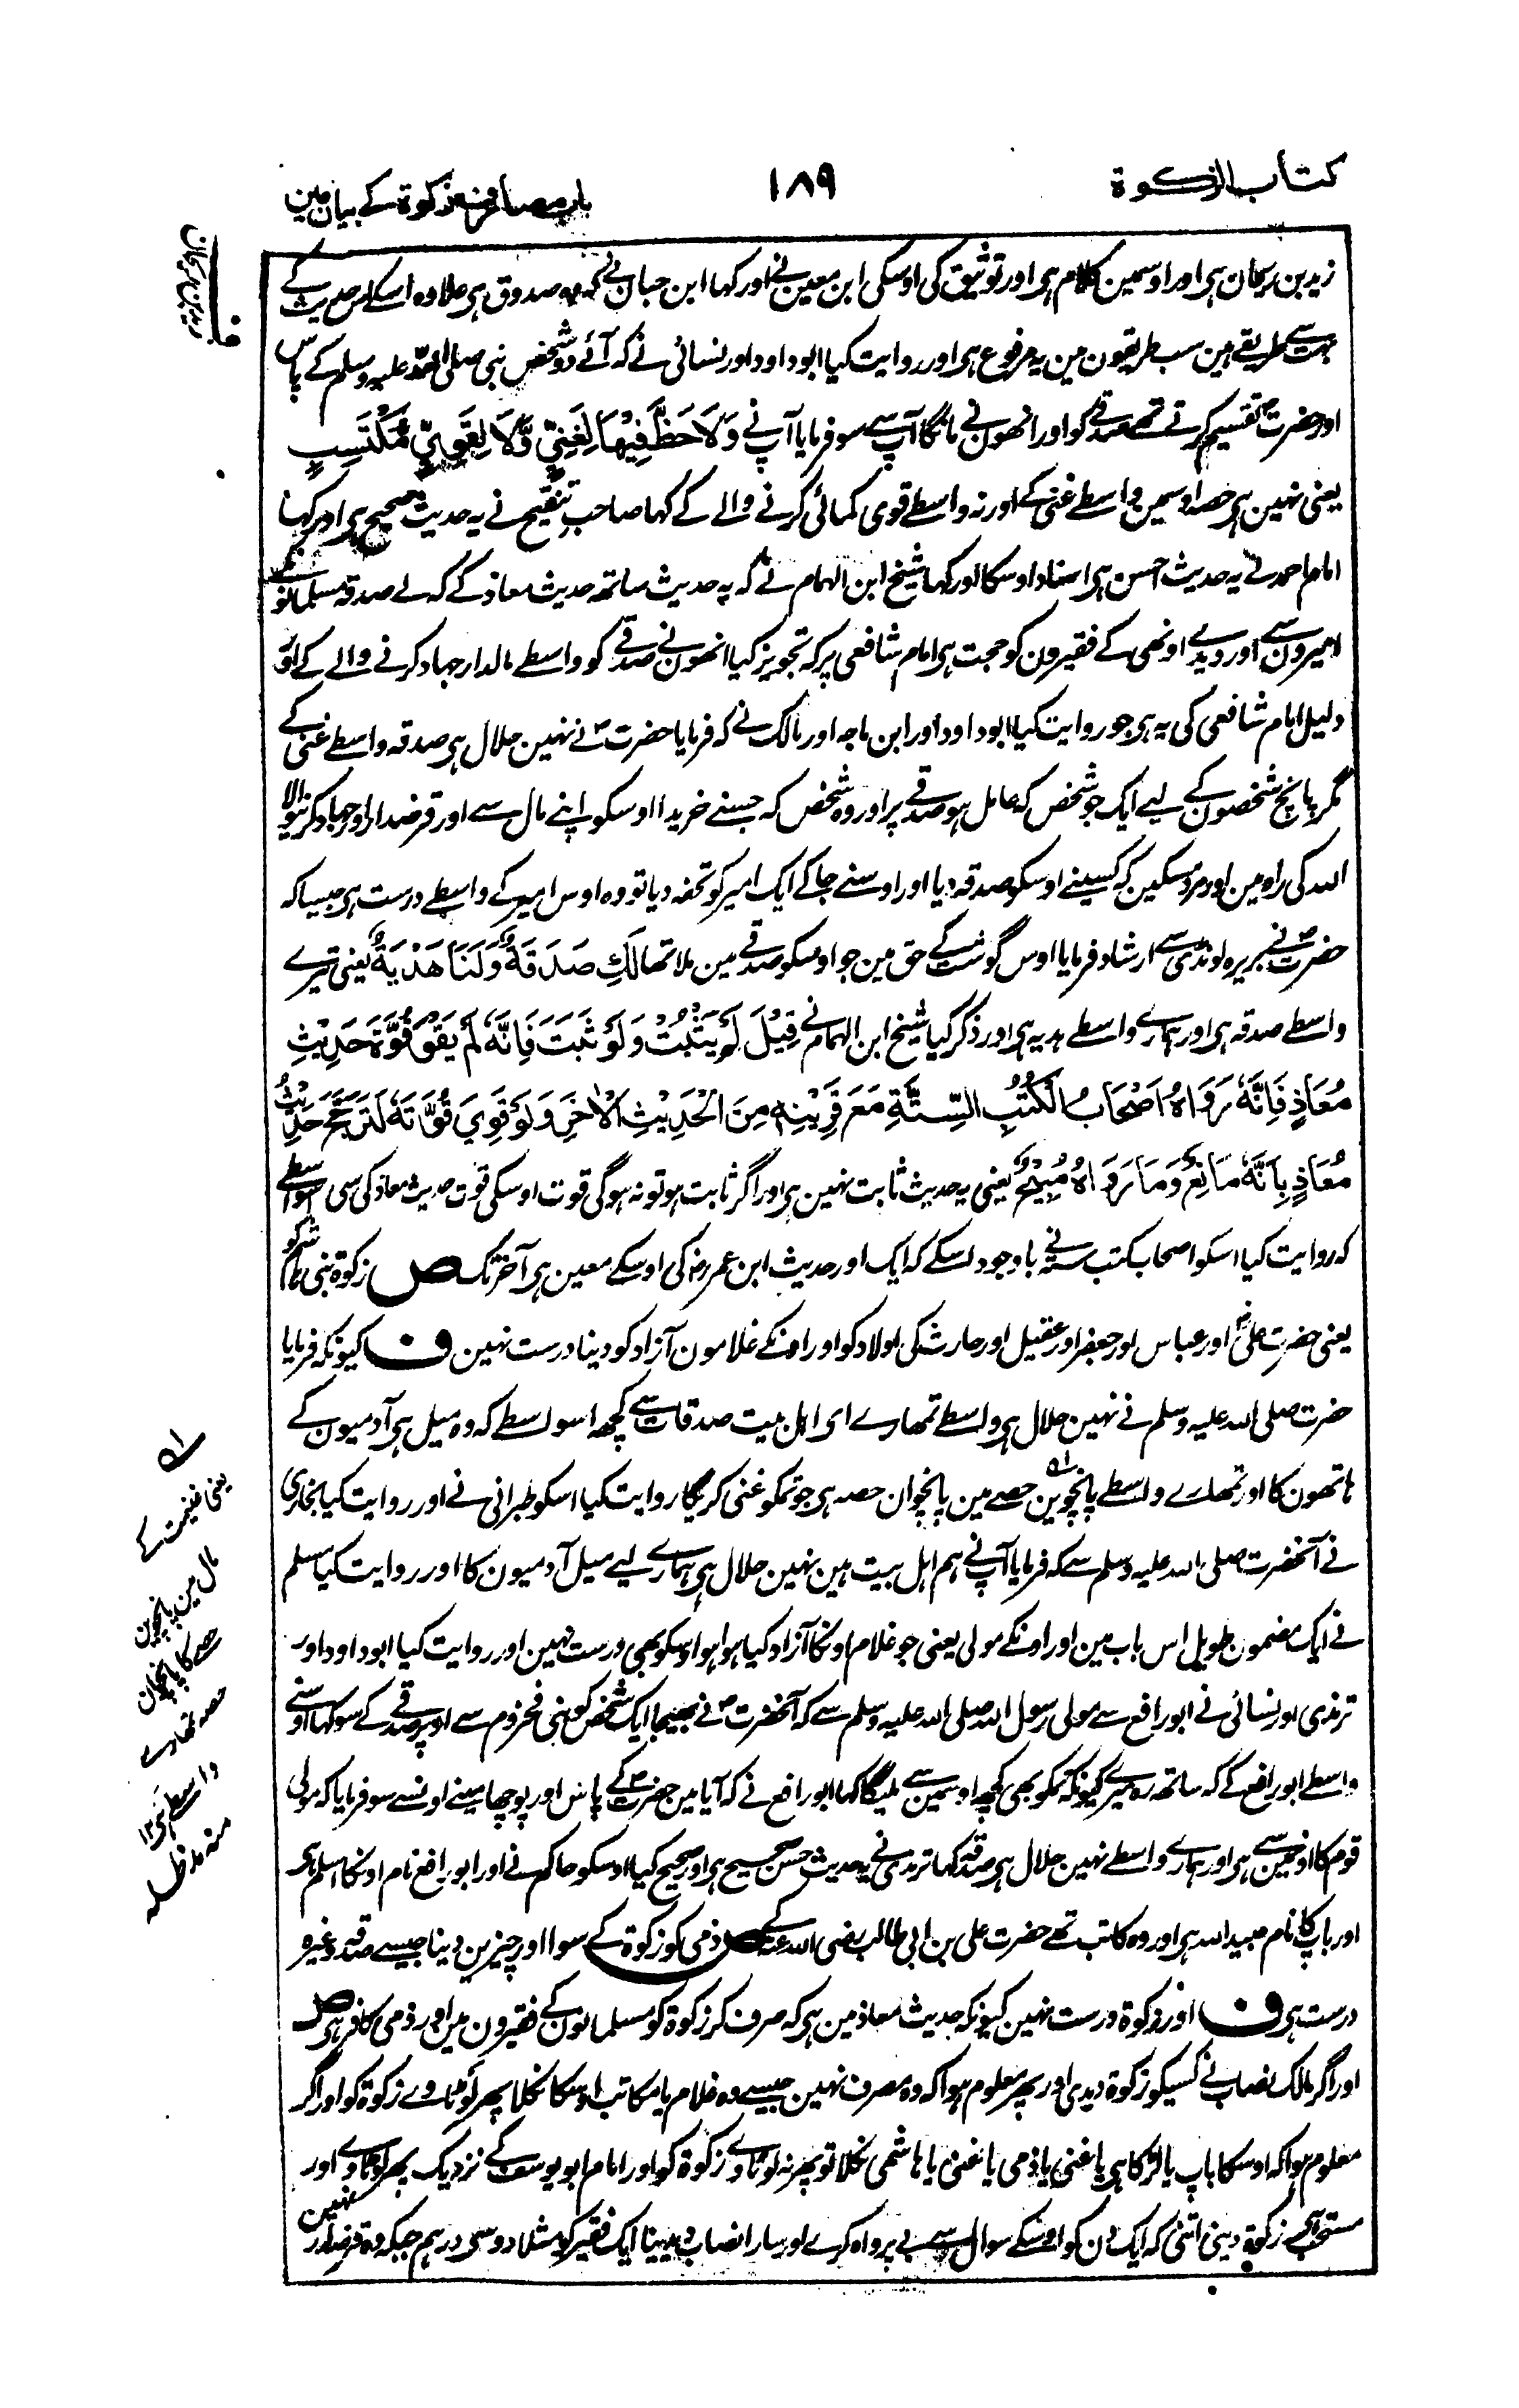 كتاب الزكوة
١٨٩
باب مصارف زكوة كے بيان مين
ف
زيد بن ريحان
زید بن ریحان ہی اور اوسمین کلام ہی اور توثیق کی اوسکی ابن معین نے اور کہا ابن حبان نے کہ صدوق ہی علاوہ اسکے اس حدیث کے
بہت سے طریقے ہین سب طریقون مین یہ مرفوع ہی اور روایت کیا ابو داود اور نسائی نے کہ آئے دو شخص نبی صلی اللہ علیہ وسلم کے پاس
اور حضرت تقسیم کرتے تھے صدقے کو اور انھون نے مانگا آپ سے سو فرمایا آپ نے وَلَا حَظَّ فِيْهَا لِغَنِيٍّ وَّلَا لِقَوِيٍّ مُكْتَسِبٍ
یعنی نہین ہی حصہ اوسمین واسطے غنی کے اور نہ واسطے قوی کمائی کرنے والے کے کہا صاحب تنقیح نے یہ حدیث صحیح ہی اور کہا
امام احمد نے یہ حدیث احسن ہی اسناد اوسکا اور کہا شیخ ابن الہمام نے کہ یہ حدیث ساتھ حدیث معاذ کے کہ لے صدقہ مسلمانونکے
امیرون سے اور دیدے اونھی کے فقیرون کو حجت ہی امام شافعی پر کہ تجویز کیا انھون نے صدقے کو واسطے مالدار جہاد کرنے والے کے اور
دلیل امام شافعی کی یہ ہی جو روایت کیا ابو داود اور ابن ماجہ اور مالک نے کہ فرمایا حضرت نے نہین حلال ہی صدقہ واسطے غنی کے
مگر پانچ شخصون کے لیے ایک جو شخص کہ عامل ہو صدقے پر اور وہ شخص کہ جسنے خریدا اوسکو اپنے مال سے اور قرضدار اور جہاد کرنیوالا
اللہ کی راہ مین اور مرد مسکین کہ کسینے اوسکو صدقہ دیا اور اوسنے جا کے ایک امیر کو تحفہ دیا تو وہ اوس امیر کے واسطے درست ہی جیسا کہ
حضرت نے بریرہ لونڈی سے ارشاد فرمایا اوس گوشت کے حق مین جو اوسکو صدقے مین ملا تھا لَكِ صَدَقَةٌ وَلَنَا هَدْيَةٌ یعنی تیرے
واسطے صدقہ ہی اور ہمارے واسطے ہدیہ ہی اور ذکر کیا شیخ ابن الہمام نے قِيْلَ لَمْ يَثْبُتْ وَلَوْ ثَبَتَ فَاِنَّهٗ لَمْ يَقْوَ قُوَّةَ حَدِيْثِ
مُعَاذٍ فَاِنَّهٗ رَوَاهُ اَصْحَابُ الْكُتُبِ السِّتَّةِ مَعَ قَرِيْنِهٖ مِنَ الْحَدِيْثِ الْاٰخَرِ وَلَوْ قَوِيَ قُوَّتَهٗ لَتَرَجَّحَ حَدِيْثُ
مُعَاذٍ بِاَنَّهٗ مَانِعٌ وَمَا رَوَاهُ مُبِيْحٌ یعنی یہ حدیث ثابت نہین ہی اور اگر ثابت ہو تو نہ ہوگی قوت اوسکی قوت حدیث معاذ کی سی اسواسطے
کہ روایت کیا اسکو اصحاب کتب ستہ نے باوجود اسکے کہ ایک اور حدیث ابن عمر رض کی اوسکے معین ہی آخر تک ص زکوۃ بنی ہاشم کو
یعنی حضرت علی اور عباس اور جعفر اور عقیل اور حارث کی اولاد کو اور اونکے غلامون آزاد کو دینا درست نہین ف کیونکہ فرمایا
حضرت صلی اللہ علیہ وسلم نے نہین حلال ہی واسطے تمھارے ای اہل بیت صدقات سے کچھ اسواسطے کہ وہ میل ہی آدمیون کے
ہاتھون کا اور تمھارے واسطے پانچوین حصے مین پانچوان حصہ ہی جو تمکو غنی کریگا روایت کیا اسکو طبرانی نے اور روایت کیا بخاری
نے آنحضرت صلی اللہ علیہ وسلم سے کہ فرمایا آپ نے ہم اہل بیت ہین نہین حلال ہی ہمارے لیے میل آدمیون کا اور روایت کیا مسلم
نے ایک مضمون طویل اس باب مین اور اونکے مولی یعنی جو غلام اونکا آزاد کیا ہوا ہو اوسکو بھی درست نہین اور روایت کیا ابو داود اور
ترمذی اور نسائی نے ابو رافع سے مولی رسول اللہ صلی اللہ علیہ وسلم سے کہ آنحضرت نے بھیجا ایک شخص کو بنی مخزوم سے اوپر صدقے کے سو کہا اوسنے
واسطے ابو رافع کے کہ ساتھ رہ میرے کیونکہ تمکو بھی کچھ اوسمین سے ملیگا کہا ابو رافع نے کہ آیا مین حضرت کے پاس اور پوچھا مینے اونسے سو فرمایا کہ مولی
قوم کا اونھین سے ہی اور ہمارے واسطے نہین حلال ہی صدقہ کہا ترمذی نے یہ حدیث حسن صحیح ہی اور صحیح کیا اوسکو حاکم نے اور ابو رافع نام اونکا اسلم ہی
اور باپ کا نام عبید اللہ ہی اور وہ کاتب تھے حضرت علی بن ابی طالب رضی اللہ عنہ کے ص ذمی کو زکوۃ کے سوا اور چیزین دینا جیسے صدقہ وغیرہ
درست ہی ف اور زکوۃ درست نہین کیونکہ حدیث معاذ مین ہی کہ صرف کر زکوۃ کو مسلمانون کے فقیرون مین اور ذمی کافر ہی ص
اور اگر مالک نصاب نے کسیکو زکوۃ دیدی اور پھر معلوم ہوا کہ وہ مصرف نہین جیسے وہ غلام یا مکاتب اوسکا نکلا پھر لوٹاوے زکوۃ کو اور اگر
معلوم ہوا کہ اوسکا باپ یا لڑکا ہی یا غنی یا ذمی یا ہاشمی نکلا تو پھر نہ لوٹاوے زکوۃ کو اور امام ابو یوسف کے نزدیک پھر لوٹاوے اور
مستحب ہی زکوۃ دینی اتنی کہ ایک دن کو اوسکے سوال سے بے پرواہ کرے اور سارا نصاب دیدینا ایک فقیر کو مثلا دو سو درہم جبکہ وہ قرضدار نہین
ا؎
یعنی غنیمت کے
مال مین پانچوین
حصے کا پانچوان
حصہ تمھارے
واسطے ہی ۱۲
منہ مد ظلہ